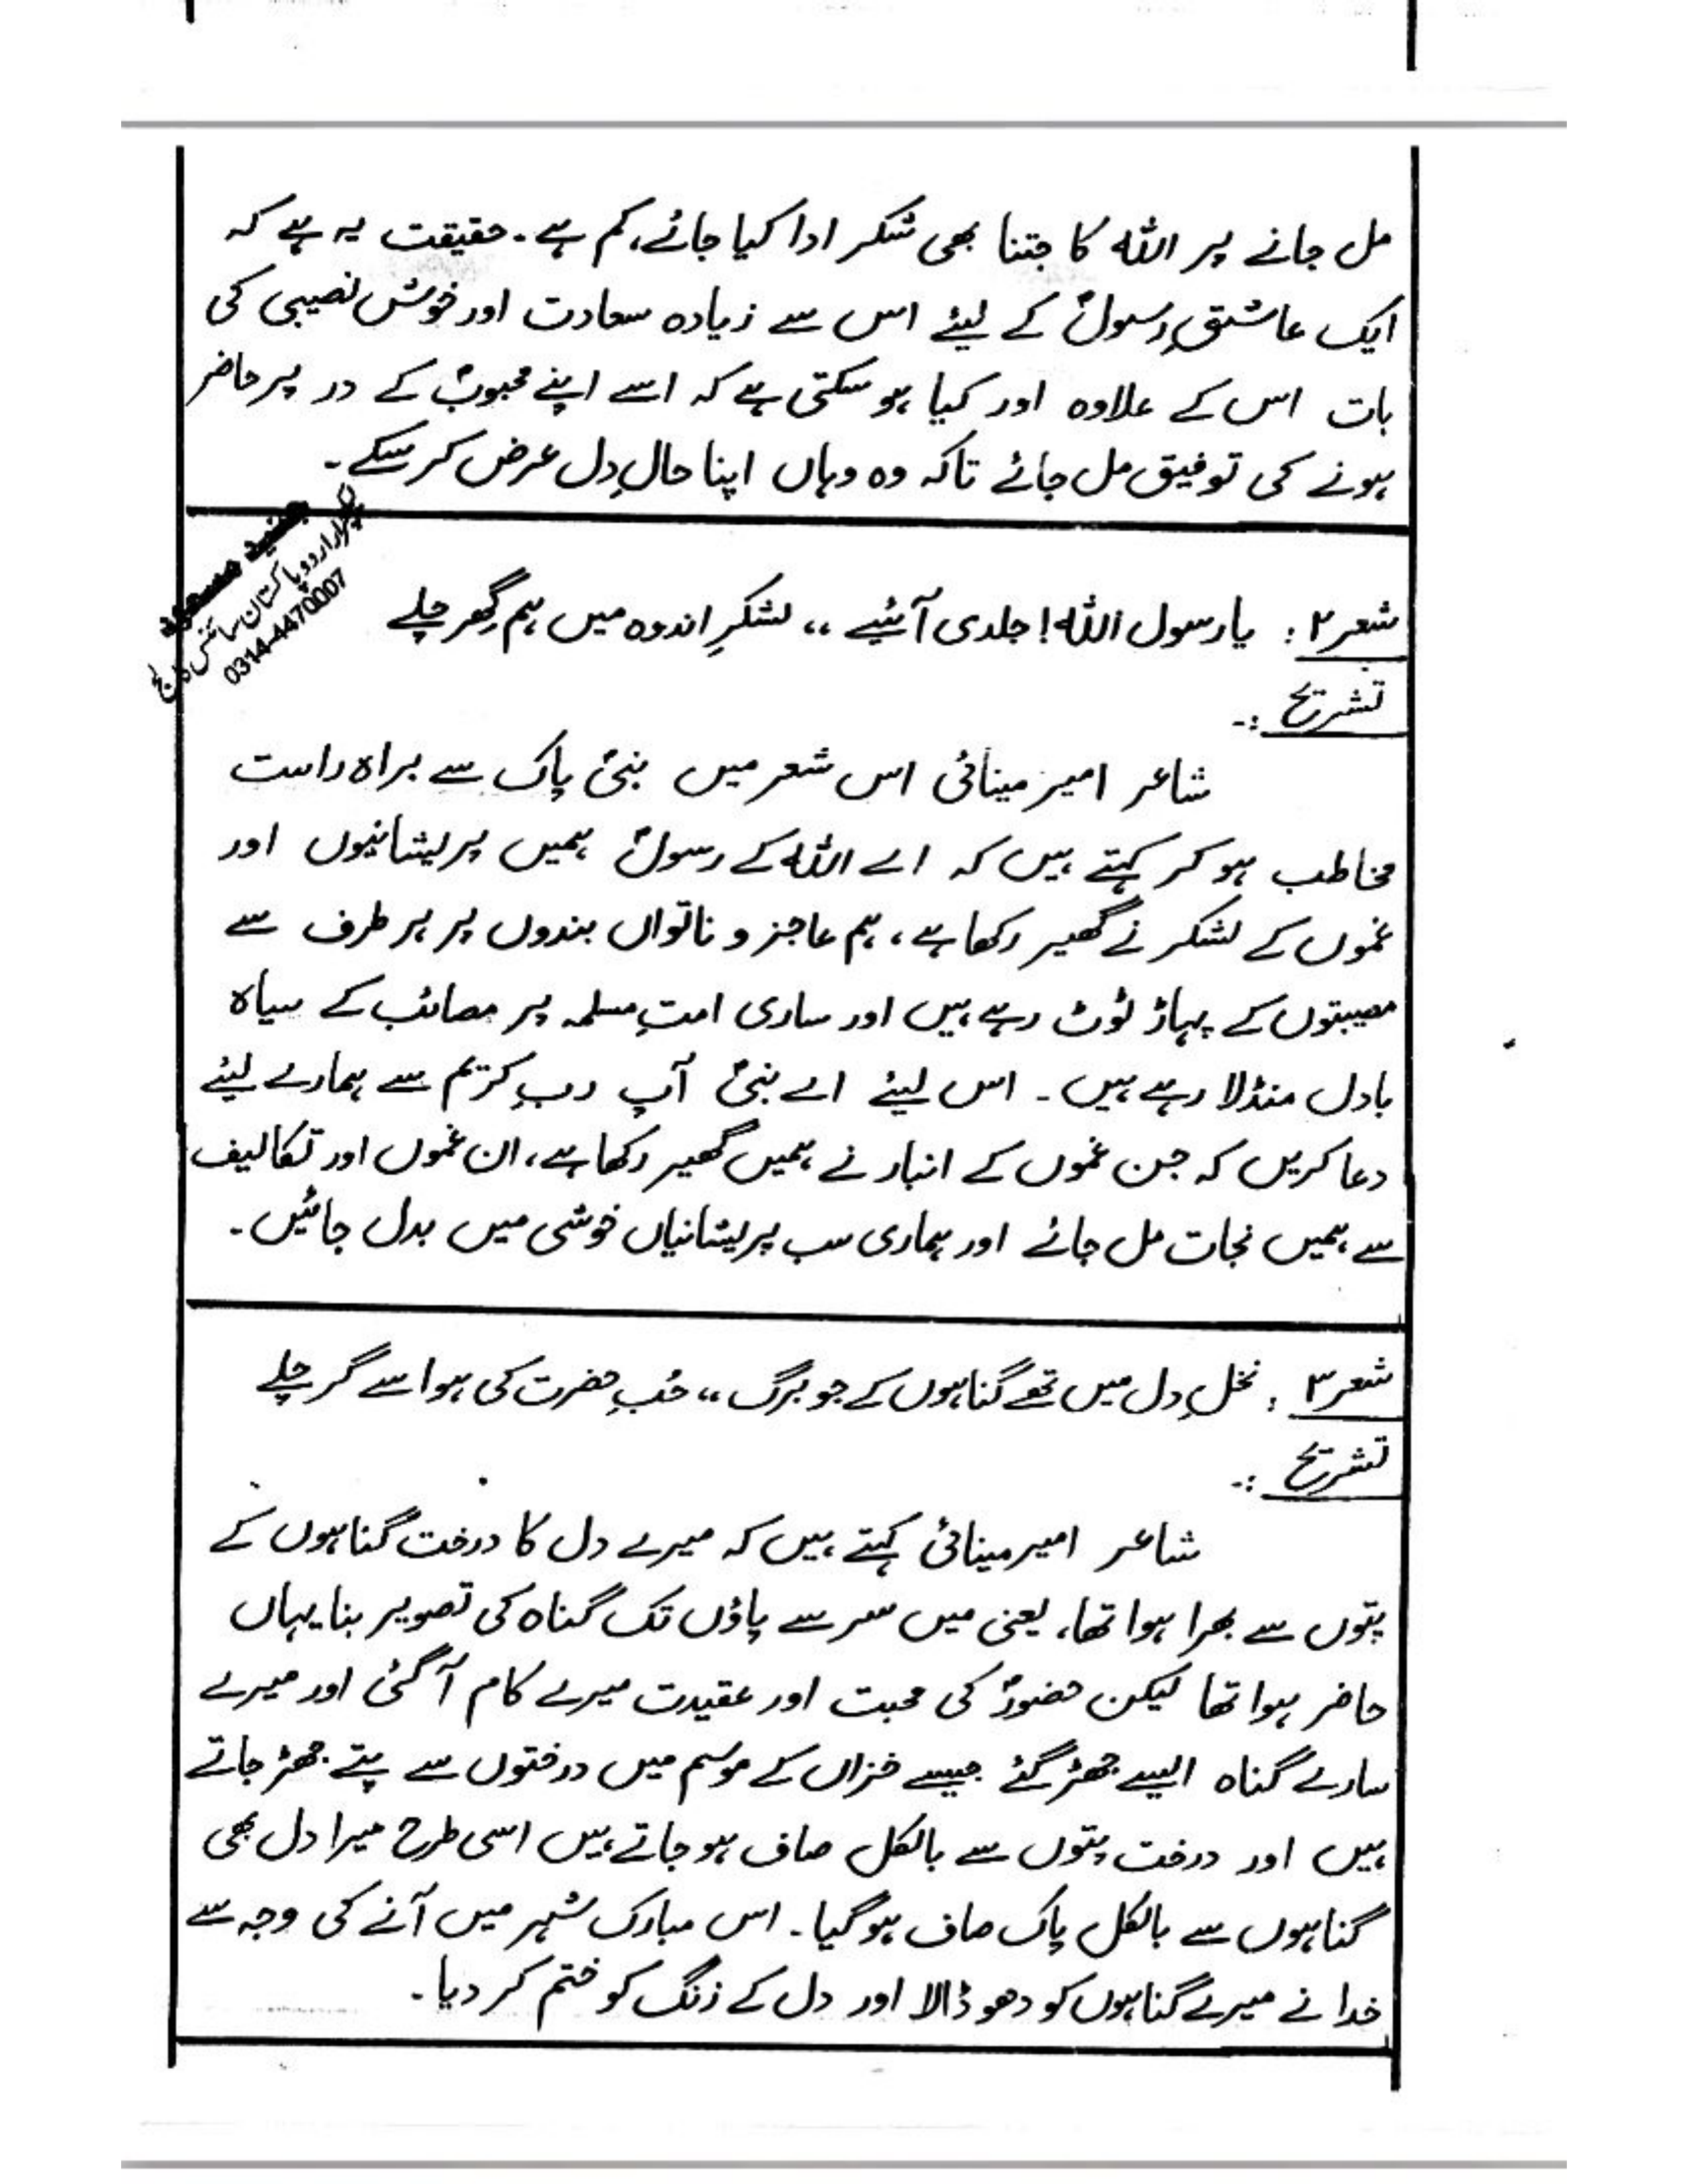 مل جانے پر اللہ کا جتنا بھی شکر ادا کیا جائے، کم ہے۔ حقیقت یہ ہے کہ
ایک عاشقِ رسولؐ کے لیئے اس سے زیادہ سعادت اور خوش نصیبی کی
بات اس کے علاوہ اور کیا ہو سکتی ہے کہ اسے اپنے محبوبؐ کے در پر حاضر
ہونے کی توفیق مل جائے تاکہ وہ وہاں اپنا حالِ دل عرض کر سکے۔
جنید مسعود
لیکچرار اردو پاکستان سائنس کالج
0314-4470007
شعر ۲ : یا رسول اللہ! جلدی آئیے ،، لشکرِ اندوہ میں ہم گِھر چلے
تشریح :۔
شاعر امیر مینائی اس شعر میں نبیؐ پاک سے براہ راست
مخاطب ہو کر کہتے ہیں کہ اے اللہ کے رسولؐ ہمیں پریشانیوں اور
غموں کے لشکر نے گھیر رکھا ہے، ہم عاجز و ناتواں بندوں پر ہر طرف سے
مصیبتوں کے پہاڑ ٹوٹ رہے ہیں اور ساری امتِ مسلمہ پر مصائب کے سیاہ
بادل منڈلا رہے ہیں۔ اس لیئے اے نبیؐ آپ ربِ کریم سے ہمارے لیئے
دعا کریں کہ جن غموں کے انبار نے ہمیں گھیر رکھا ہے، ان غموں اور تکالیف
سے ہمیں نجات مل جائے اور ہماری سب پریشانیاں خوشی میں بدل جائیں۔
شعر ۳ : نخلِ دل میں تھے گناہوں کے جو برگ ،، حُبِ حضرت کی ہوا سے گر چلے
تشریح :۔
شاعر امیر مینائی کہتے ہیں کہ میرے دل کا درخت گناہوں کے
پتوں سے بھرا ہوا تھا، یعنی میں سر سے پاؤں تک گناہ کی تصویر بنا یہاں
حاضر ہوا تھا لیکن حضورؐ کی محبت اور عقیدت میرے کام آ گئی اور میرے
سارے گناہ ایسے جھڑ گئے جیسے خزاں کے موسم میں درختوں سے پتے جھڑ جاتے
ہیں اور درخت پتوں سے بالکل صاف ہو جاتے ہیں اسی طرح میرا دل بھی
گناہوں سے بالکل پاک صاف ہو گیا۔ اس مبارک شہر میں آنے کی وجہ سے
خدا نے میرے گناہوں کو دھو ڈالا اور دل کے زنگ کو ختم کر دیا۔